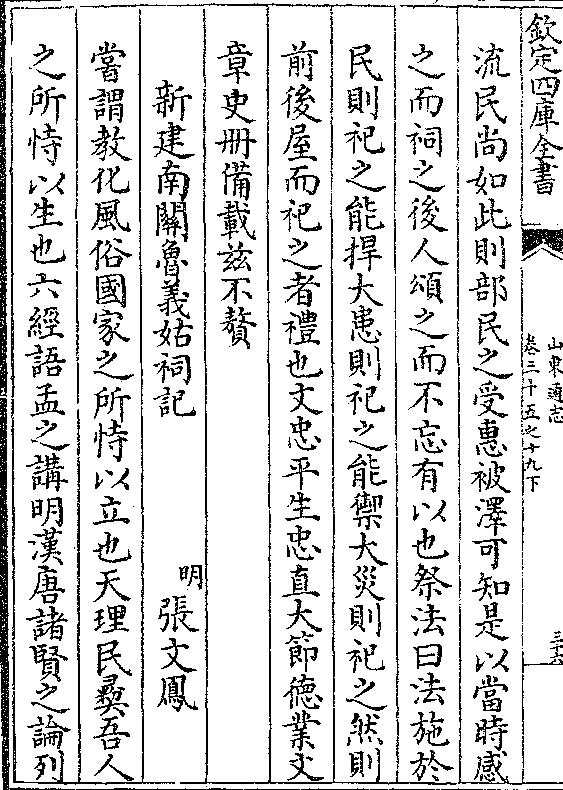 欽定四庫全書
山東通志
卷三十五之十九下
三十六
流民尚如此則部民之受惠被澤可知是以當時感
之而祠之後人頌之而不忘有以也祭法曰法施於
民則祀之能捍大患則祀之能禦大災則祀之然則
前後屋而祀之者禮也文忠平生忠直大節德業文
章史冊備載茲不贅
新建南關魯義姑祠記
明張文鳳
嘗謂教化風俗國家之所恃以立也天理民彝吾人
之所恃以生也六經語孟之講明漢唐諸賢之論列